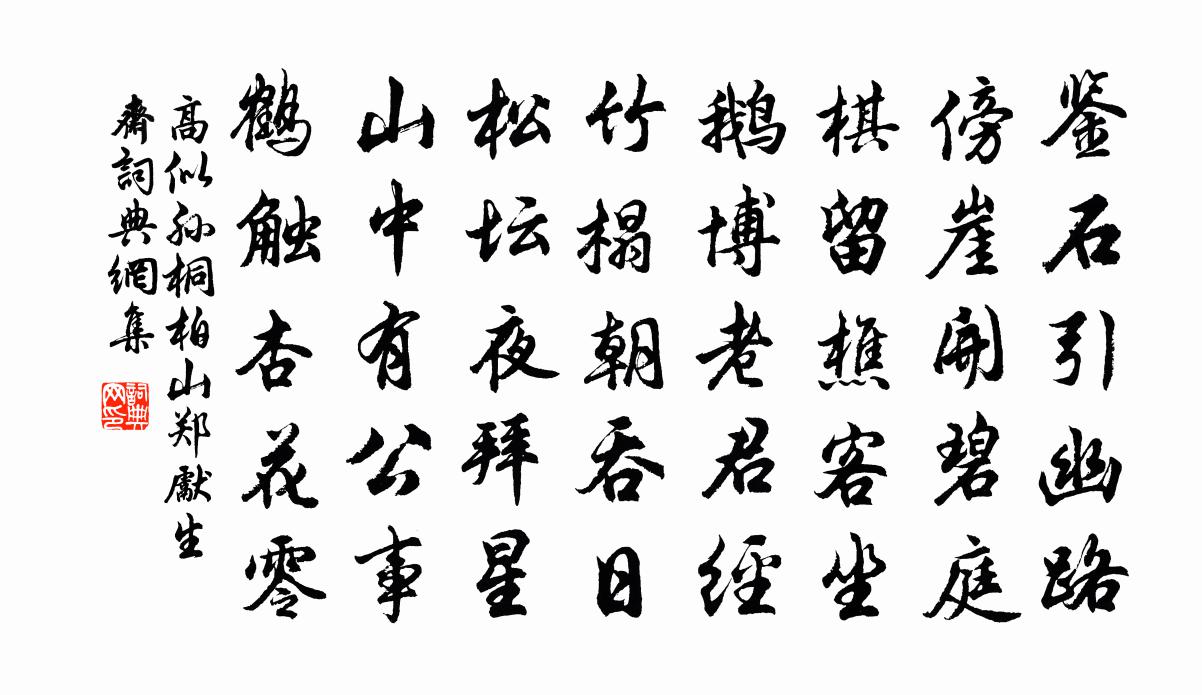 鉴石引幽路
傍崖開碧庭
棋留樵客坐
鹅博老君经
竹榻朝吞日
松坛夜拜星
山中有公事
鹤触杏花零
高似孙桐柏山郑獻生
齋詞典網集
詞典
网印